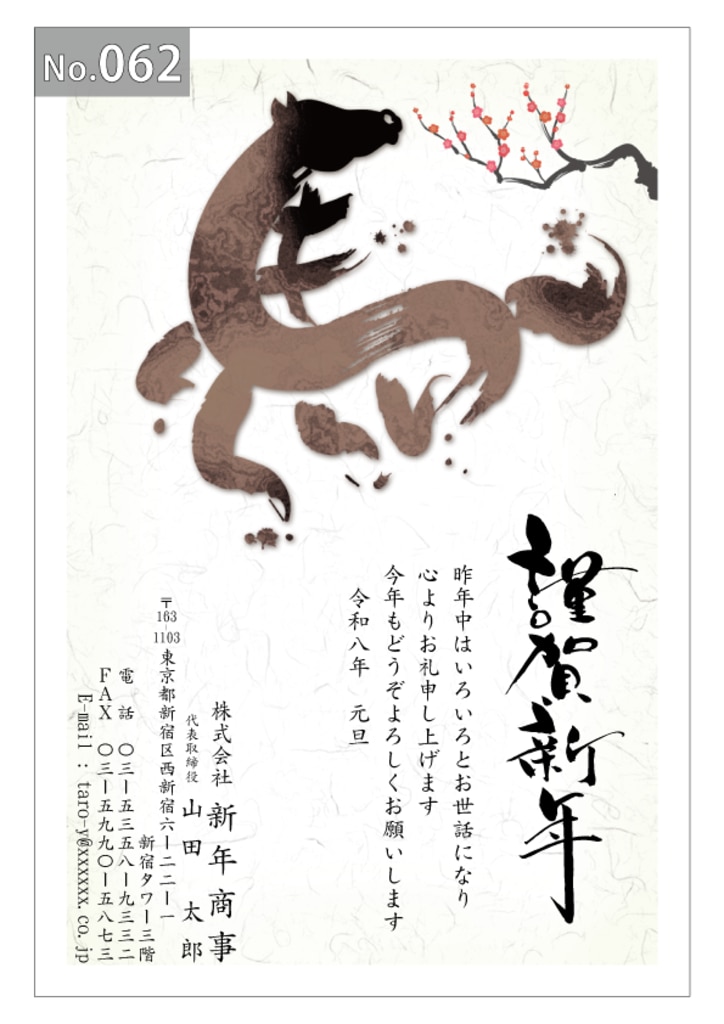 No.062
謹賀新年
昨年中はいろいろとお世話になり
心よりお礼申し上げます
今年もどうぞよろしくお願いします
令和八年 元旦
株式会社 新年商事
代表取締役 山田 太郎
〒163-1103 東京都新宿区西新宿六ー二二ー一
新宿タワー三階
電話 〇三ー五三五八ー九三三二
FAX 〇三ー五九九〇ー五八七三
E-mail : taro-y@xxxxxx.co.jp